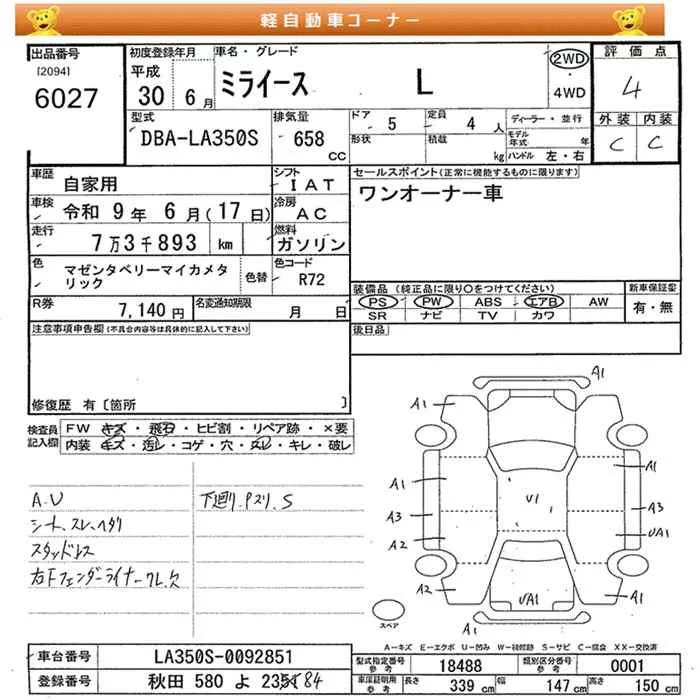 軽自動車コーナー
出品番号
[2094]
6027
初度登録年月
平成
30 6月
車名・グレード
ミライース L
2WD
・
4WD
評価点
4
型式
DBA-LA350S
排気量
658
CC
ドア
5
定員
4人
形状
積載
kg
ディーラー・並行
モデル年式 年
ハンドル 左・右
外装 内装
C C
車歴
自家用
シフト
IAT
セールスポイント(正常に機能するものに限ります)
ワンオーナー車
車検
令和 9年 6月(17日)
冷房
AC
走行
7万3千893 km
燃料
ガソリン
色
マゼンタベリーマイカメタリック
色替
色コード
R72
装備品(純正品に限り○をつけてください)
PS PW ABS エアB AW
SR ナビ TV カワ
新車保証書
有・無
R券
7,140円
名変通知期限
月 日
後日品
注意事項申告欄(不具合内容等は具体的に記入して下さい)
修復歴 有〔箇所 〕
検査員記入欄
FW キズ・飛石・ヒビ割・リペア跡・×要
内装 キズ・汚レ・コゲ・穴・スレ・キレ・破レ
A.U
シート、スレ、ヘタリ
スタッドレス
右Fフェンダーライナークレ、欠
下廻り、Pズリ、S
A1
A1
A1
A1
A1
A3
A3
U1
UA1
A2
A2
A1
UA1
A1
スペア
A−キズ E−エクボ U−凹み W−補修跡 S−サビ C−腐食 XX−交換済
車台番号
LA350S-0092851
型式指定番号
参考
18488
類別区分番号
参考
0001
登録番号
秋田 580 よ
84
車庫証明用
参考
長さ
339 cm
幅
147 cm
高さ
150 cm